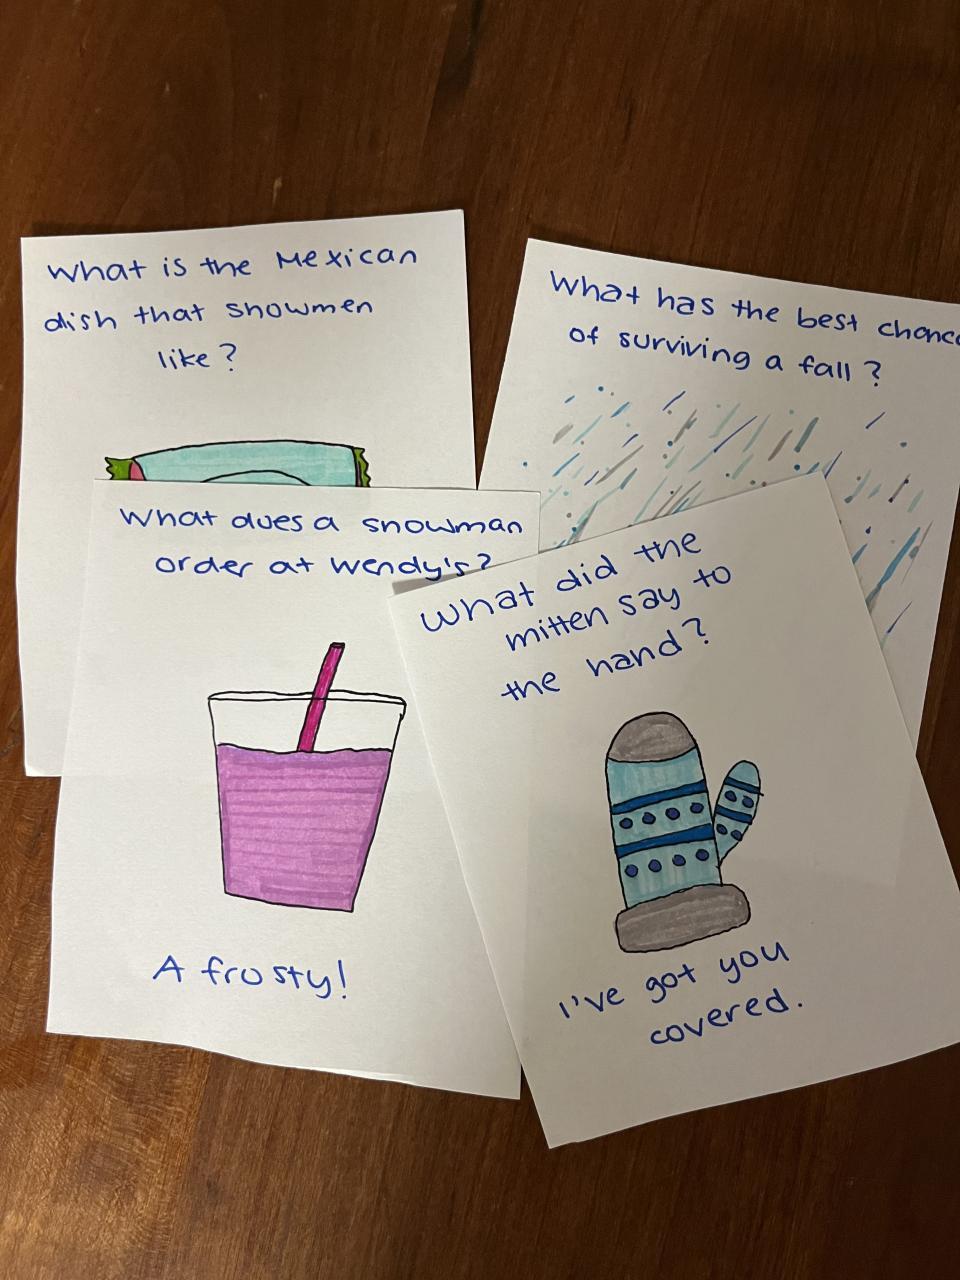 What is the Mexican
dish that snowmen
like?
What has the best chance
of surviving a fall?
What does a snowman
order at Wendy's?
A frosty!
What did the
mitten say to
the hand?
I've got you
covered.